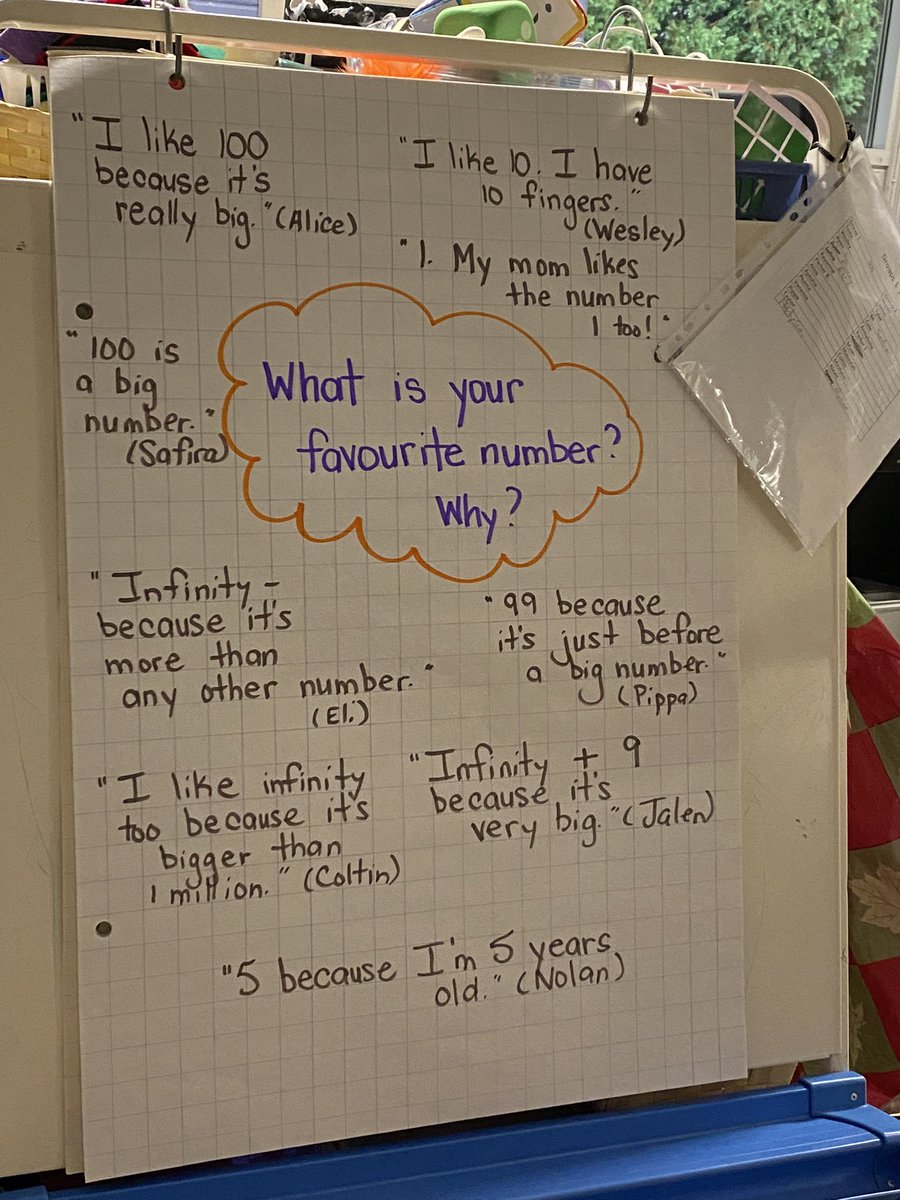 "I like 100
because it's
really big." (Alice)
"I like 10. I have
10 fingers."
(Wesley)
"1. My mom likes
the number
1 too!"
"100 is
a big
number."
(Safira)
What is your
favourite number?
Why?
"Infinity –
because it's
more than
any other number."
(Eli)
"99 because
it's just before
a big number."
(Pippa)
"I like infinity
too because it's
bigger than
1 million." (Coltin)
"Infinity + 9
because it's
very big." (Jalen)
"5 because I'm 5 years
old." (Nolan)